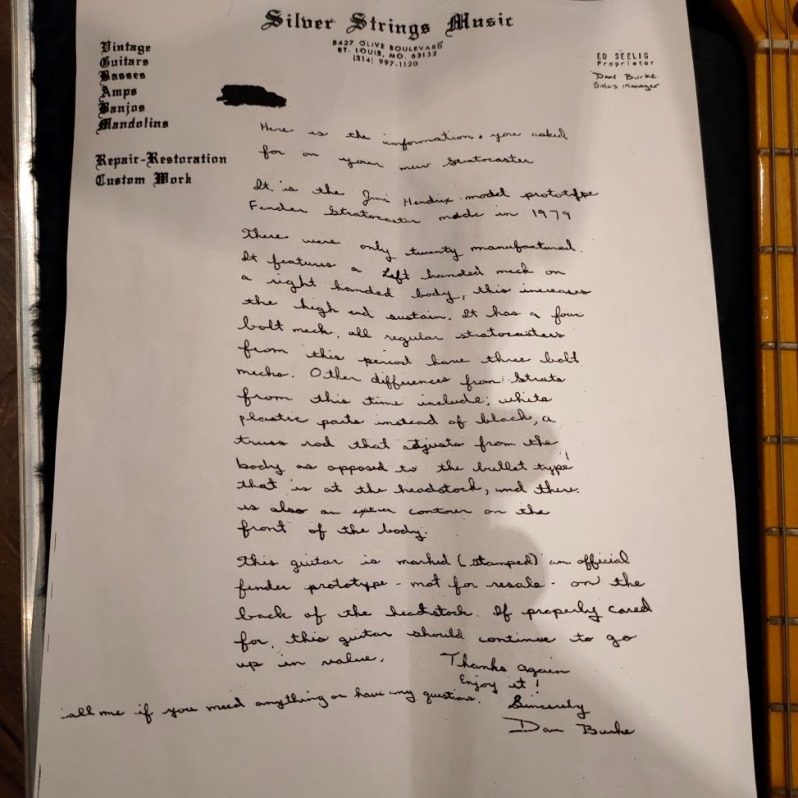 Silver Strings Music
8427 OLIVE BOULEVARD
ST. LOUIS, MO. 63132
(314) 997-1120
Vintage
Guitars
Basses
Amps
Banjos
Mandolins
Repair-Restoration
Custom Work
ED SEELIG
Proprietor
Dan Burke
Sales Manager
Here is the information you asked
for on your new Stratocaster
It is the Jimi Hendrix model prototype
Fender Stratocaster made in 1979
There were only twenty manufactured.
It features a left handed neck on
a right handed body, this increases
the high end sustain. It has a four
bolt neck, all regular stratocasters
from this period have three bolt
necks. Other differences from Strats
from this time include; white
plastic parts instead of black, a
truss rod that adjusts from the
body as opposed to the bullet type
that is at the headstock, and there
is also an extra contour on the
front of the body.
This guitar is marked (stamped) an official
fender prototype - not for resale - on the
back of the headstock. If properly cared
for, this guitar should continue to go
up in value.
Thanks again
Enjoy it!
all me if you need anything or have any questions.
Sincerely
Dan Burke